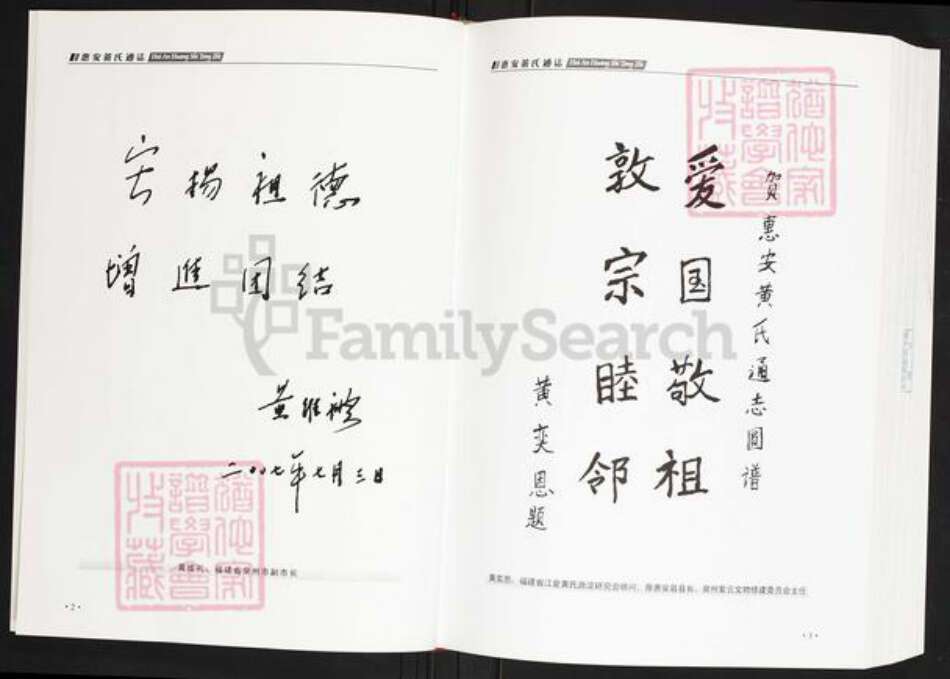 惠安黄氏通志 Hui An Huang Shi Tong Zhi
宏揚祖德
增進团结
黄维礼
二〇〇七年七月三日
黄维礼，福建省泉州市副市长
·2·
惠安黄氏通志 Hui An Huang Shi Tong Zhi
賀惠安黄氏通志圆谱
爱国敬祖
敦宗睦邻
黄奕恩题
黄奕恩，福建省江夏黄氏源流研究会顾问，原惠安县县长，泉州紫云文物修建委员会主任
·3·
猶他家
譜學會
收藏
猶他家
譜學會
收藏
FamilySearch